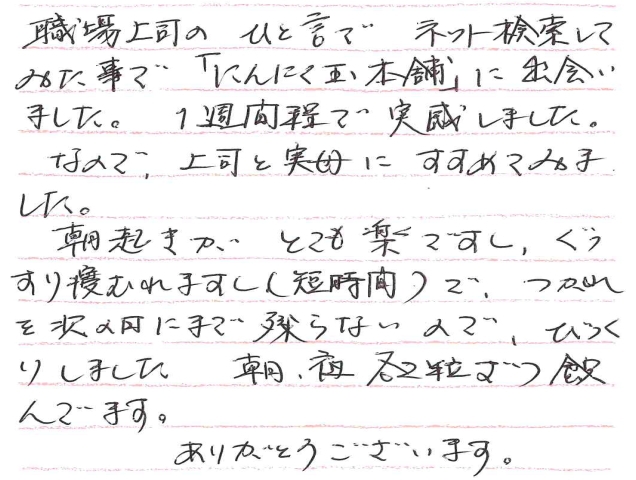 職場上司の ひと言で ネット検索して
みた事で「にんにく玉本舗」に出会い
ました。 1週間程で実感しました。
なので、上司と実母に すすめてみま
した。
朝起きが とても楽ですし、ぐっ
すり寝むれますし(短時間)で、つかれ
を次の日にまで残らないので、びっく
りしました 朝、夜 各2粒ずつ飲
んでます。
ありがとうございます。